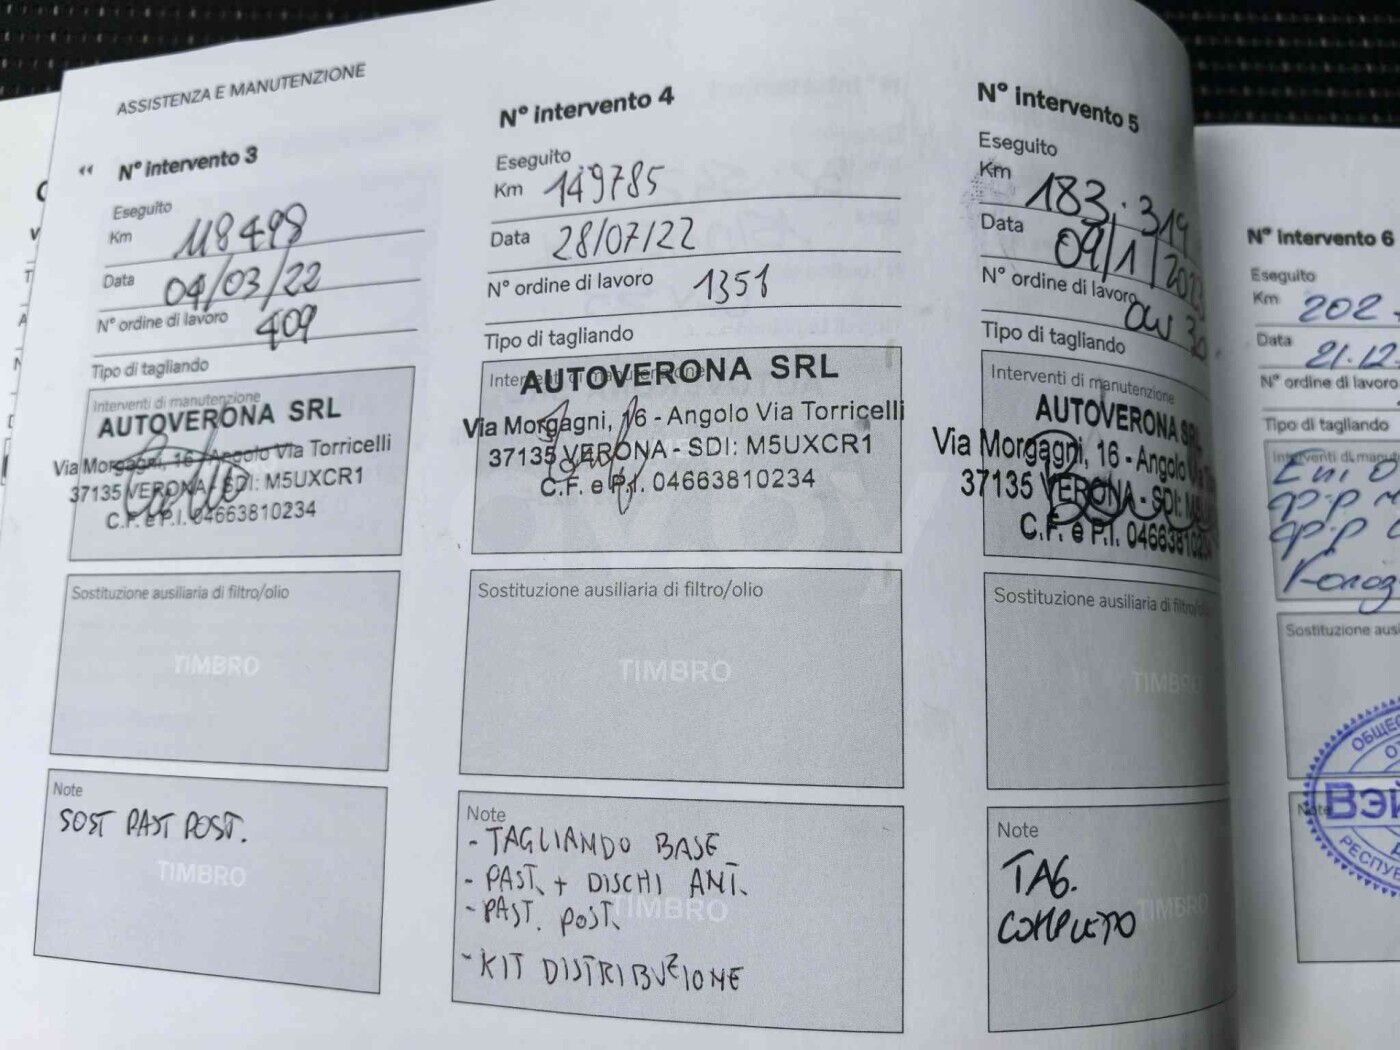 ASSISTENZA E MANUTENZIONE
N° intervento 3
Eseguito
Km 118498
Data 04/03/22
N° ordine di lavoro 409
Tipo di tagliando
Interventi di manutenzione
AUTOVERONA SRL
Via Morgagni, 16 - Angolo Via Torricelli
37135 VERONA - SDI: M5UXCR1
C.F. e P.I. 04663810234
Sostituzione ausiliaria di filtro/olio
TIMBRO
Note
SOST PAST POST.
TIMBRO
N° intervento 4
Eseguito
Km 149785
Data 28/07/22
N° ordine di lavoro 1351
Tipo di tagliando
Interventi di manutenzione
AUTOVERONA SRL
Via Morgagni, 16 - Angolo Via Torricelli
37135 VERONA - SDI: M5UXCR1
C.F. e P.I. 04663810234
Sostituzione ausiliaria di filtro/olio
TIMBRO
Note
- TAGLIANDO BASE
- PAST. + DISCHI ANT.
- PAST. POST.
TIMBRO
- KIT DISTRIBUZIONE
N° intervento 5
Eseguito
Km 183.319
Data 09/1/2023
N° ordine di lavoro
Tipo di tagliando
Interventi di manutenzione
AUTOVERONA SRL
Via Morgagni, 16 - Angolo
37135 VERONA - SDI:
C.F. e P.I. 04663810234
Sostituzione ausiliaria di filtro/olio
TIMBRO
Note
TAG.
COMPLETO
TIMBRO
N° intervento 6
Eseguito
Km 202
Data 21.12
N° ordine di lavoro
Tipo di tagliando
Interventi di
Eni
Sostituzione
Note